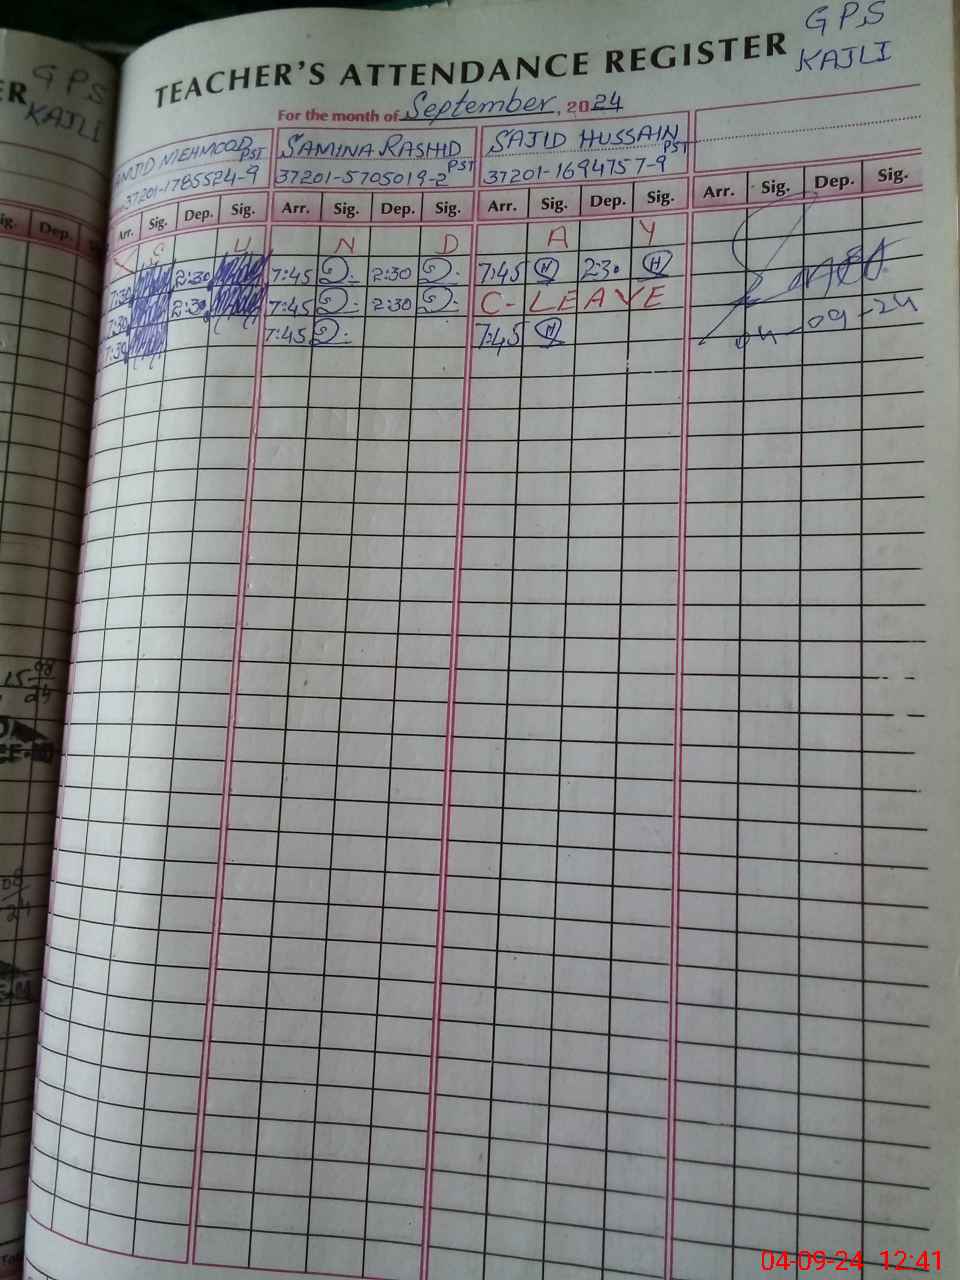 GPS
KAJLI
TEACHER'S ATTENDANCE REGISTER
For the month of September, 2024
SAMINA RASHID PST
37201-5705019-2
SAJID HUSSAIN PST
37201-1694757-9
MEHMOOD PST
37201-1785524-9
Arr. Sig. Dep. Sig. Arr. Sig. Dep. Sig. Arr. Sig. Dep. Sig. Arr. Sig. Dep. Sig.
S U N D A Y
7:30 2:30 7:45 2:30 7:45 2:30
7:30 2:30 7:45 2:30 C-LEAVE
7:30 7:45 7:45
04-09-24
ER
GPS
KAJLI
Dep.
15
04-09-24 12:41